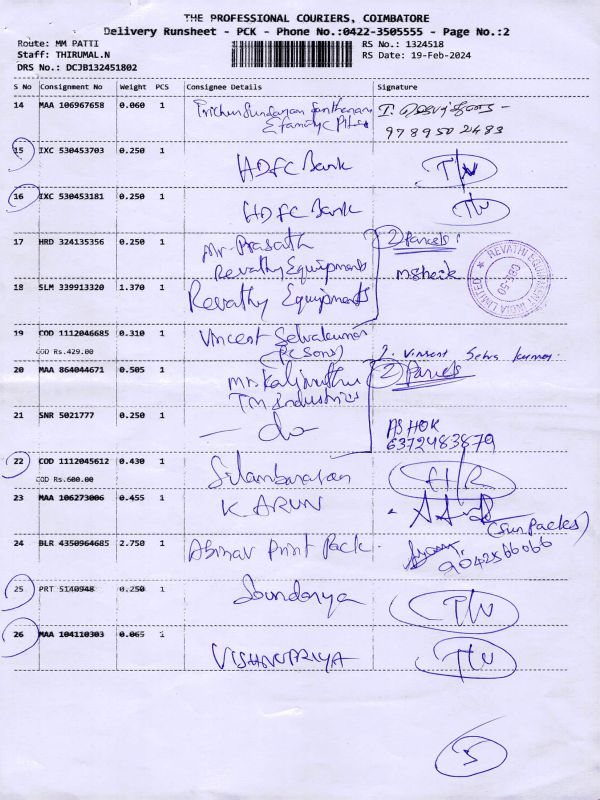 THE PROFESSIONAL COURIERS, COIMBATORE
Delivery Runsheet - PCK - Phone No.:0422-3505555 - Page No.:2
Route: MM PATTI
RS No.: 1324518
Staff: THIRUMAL.N
RS Date: 19-Feb-2024
DRS No.: DCJB132451802
S No Consignment No Weight PCS Consignee Details Signature
14 MAA 106967658 0.060 1
& family
9789502483
15 IXC 530453703 0.250 1 HDFC Bank
16 IXC 530453181 0.250 1 HDFC Bank
17 HRD 324135356 0.250 1 Mr. Prasath 2 Parcels
Revathy Equipments
18 SLM 339913320 1.370 1 Revathy Equipments
REVATHI EQUIPMENT INDIA LIMITED
19 COD 1112046685 0.310 1 Vincent Selvakumar
COD Rs.429.00
20 MAA 864044671 0.505 1 2 Parcels
TM industries
21 SNR 5021777 0.250 1 - do - ASHOK
6372483879
22 COD 1112045612 0.430 1 Silambarasan
COD Rs.600.00
23 MAA 106273006 0.455 1 K ARUN
(Sun Packs)
24 BLR 4350964685 2.750 1 Abinav Print Pack.
9042566066
25 PRT 5140948 0.250 1 Soundarya
26 MAA 104110303 0.065 1 VISHNUPRIYA
5